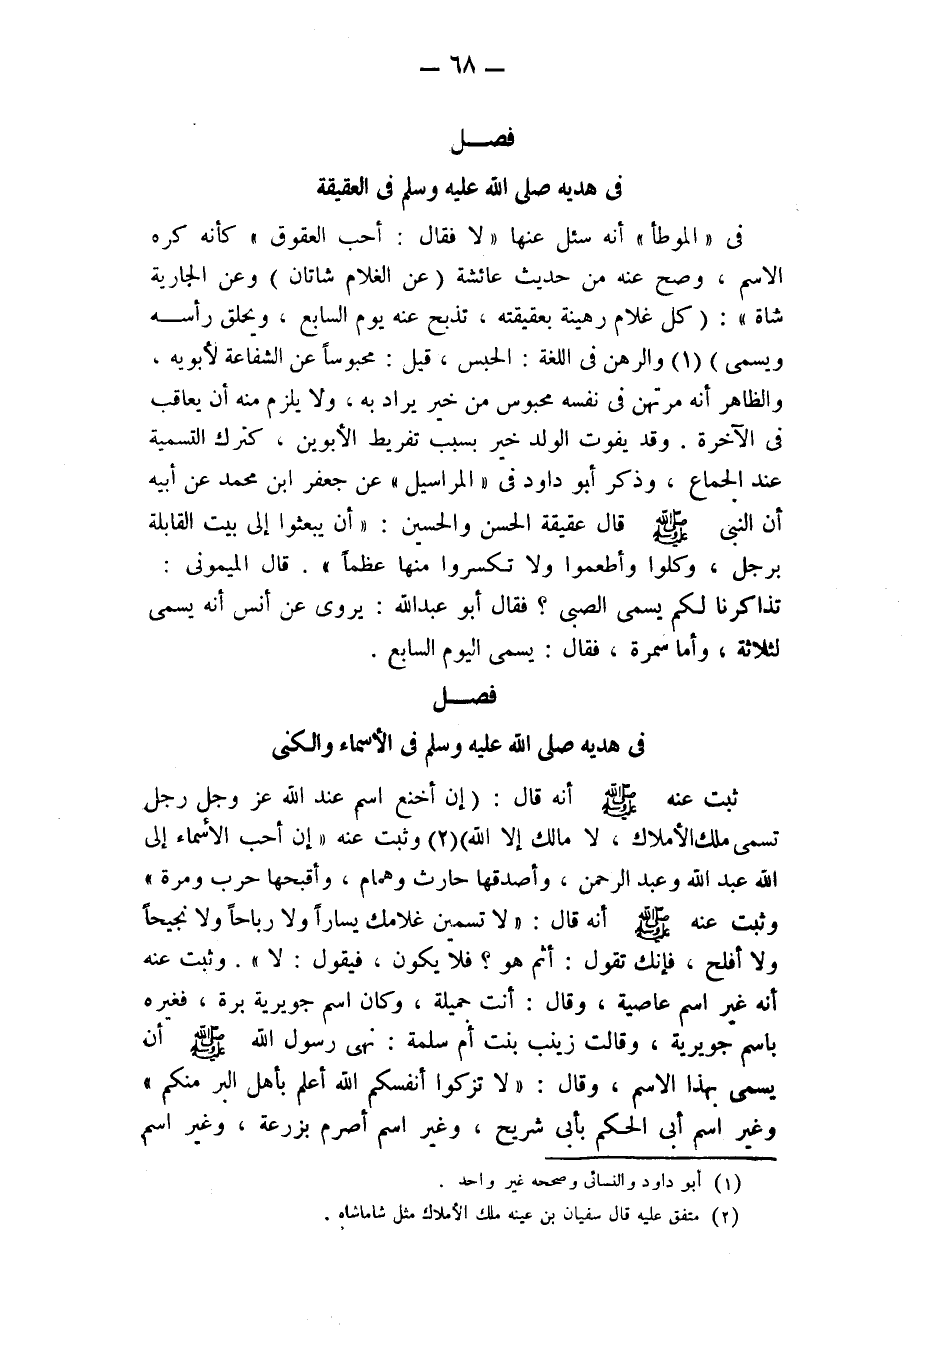 — ٦٨ —
فصــل
فى هديه صلى الله عليه وسلم فى العقيقة
فى « الموطأ » أنه سئل عنها « لا فقال : أحب العقوق » كأنه كره
الاسم ، وصح عنه من حديث عائشة ( عن الغلام شاتان ) وعن الجارية
شاة » : ( كل غلام رهينة بعقيقته ، تذبح عنه يوم السابع ، ويحلق رأســه
ويسمى ) (١) والرهن فى اللغة : الحبس ، قيل : محبوساً عن الشفاعة لأبويه .
والظاهر أنه مرتهن فى نفسه محبوس من خير يراد به ، ولا يلزم منه أن يعاقب
فى الآخرة . وقد يفوت الولد خير بسبب تفريط الأبوين ، كترك التسمية
عند الجماع ، وذكر أبو داود فى « المراسيل » عن جعفر ابن محمد عن أبيه
أن النبى ﷺ قال عقيقة الحسن والحسين : « أن يبعثوا إلى بيت القابلة
برجل ، وكلوا وأطعموا ولا تكسروا منها عظماً » . قال الميمونى :
تذاكرنا لكم يسمى الصبى ؟ فقال أبو عبدالله : يروى عن أنس أنه يسمى
لثلاثة ، وأما سمرة ، فقال : يسمى اليوم السابع .
فصــل
فى هديه صلى الله عليه وسلم فى الأسماء والكنى
ثبت عنه ﷺ أنه قال : ( إن أخنع اسم عند الله عز وجل رجل
تسمى ملك الأملاك ، لا مالك إلا الله)(٢) وثبت عنه « إن أحب الأسماء إلى
الله عبد الله وعبد الرحمن ، وأصدقها حارث وهمام ، وأقبحها حرب ومرة »
وثبت عنه ﷺ أنه قال : « لا تسمين غلامك يساراً ولا رباحاً ولا نجيحاً
ولا أفلح ، فإنك تقول : أثم هو ؟ فلا يكون ، فيقول : لا » . وثبت عنه
أنه غير اسم عاصية ، وقال : أنت جميلة ، وكان اسم جويرية برة ، فغيره
باسم جويرية ، وقالت زينب بنت أم سلمة : نهى رسول الله ﷺ أن
يسمى بهذا الاسم ، وقال : « لا تزكوا أنفسكم الله أعلم بأهل البر منكم »
وغير اسم أبى الحكم بأبى شريح ، وغير اسم أصرم بزرعة ، وغير اسم
(١) أبو داود والنسائى وصححه غير واحد .
(٢) متفق عليه قال سفيان بن عينه ملك الأملاك مثل شاماشاه .